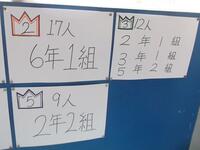 2 17人
6年1組
3 12人
2年1組
3年1組
5年2組
5 9人
2年2組